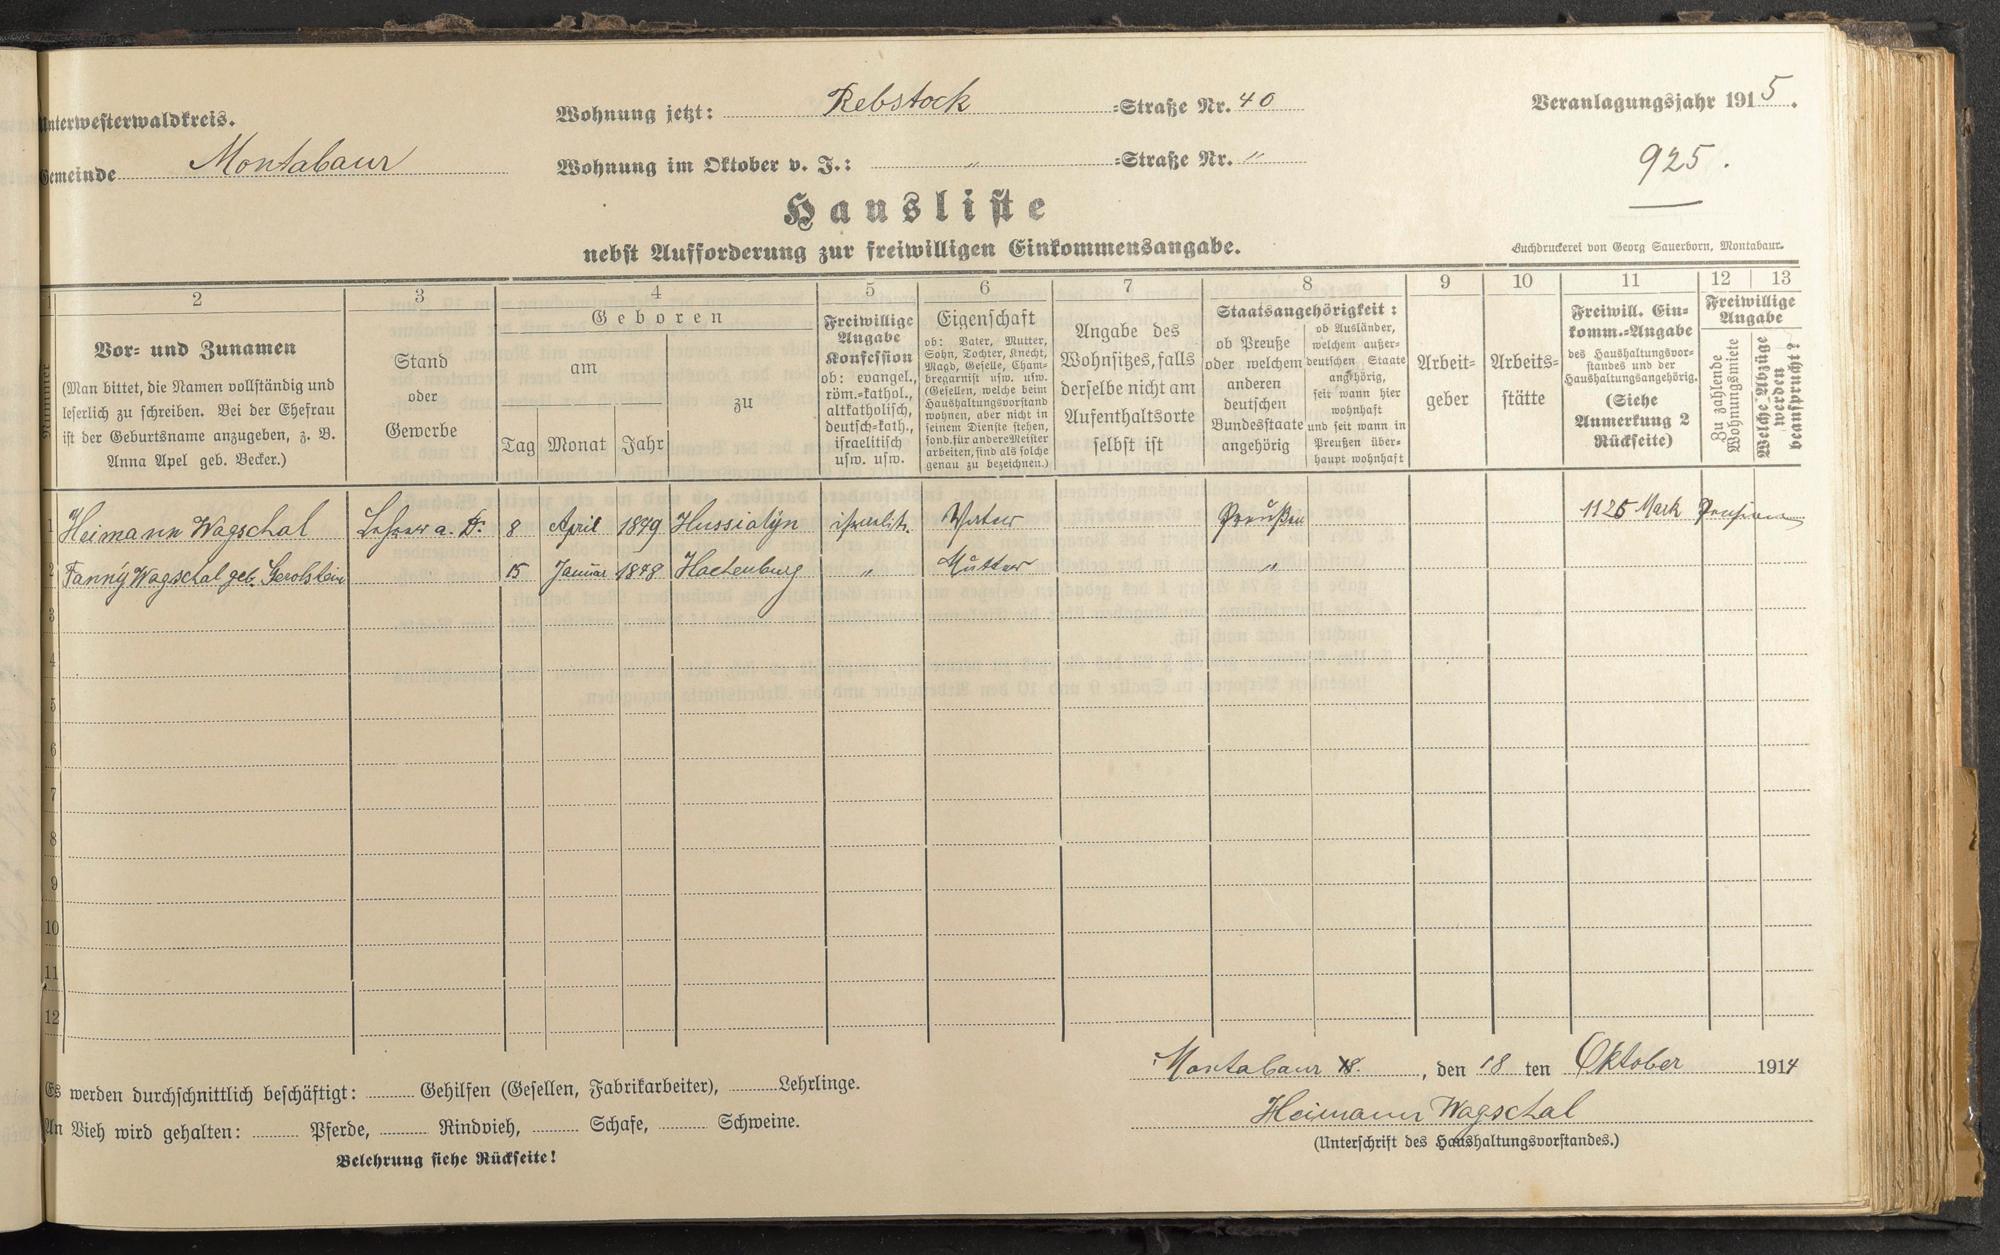 Unterwesterwaldkreis.
Gemeinde Montabaur
Wohnung jetzt: Rebstock =Straße Nr. 40
Wohnung im Oktober v. J.: " =Straße Nr. "
Veranlagungsjahr 1915.
925.
Hausliste
nebst Aufforderung zur freiwilligen Einkommensangabe.
Buchdruckerei von Georg Sauerborn, Montabaur.
1 2 3 4 5 6 7 8 9 10 11 12 13
Nummer
Vor- und Zunamen
(Man bittet, die Namen vollständig und
leserlich zu schreiben. Bei der Ehefrau
ist der Geburtsname anzugeben, z. B.
Anna Apel geb. Becker.)
Stand
oder
Gewerbe
Geboren
am
Tag Monat Jahr
zu
Freiwillige
Angabe
Konfession
ob: evangel.,
röm.=kathol.,
altkatholisch,
deutsch=kath.,
israelitisch
usw. usw.
Eigenschaft
ob: Vater, Mutter,
Sohn, Tochter, Knecht,
Magd, Geselle, Cham-
bregarnist usw. usw.
(Gesellen, welche beim
Haushaltungsvorstand
wohnen, aber nicht in
seinem Dienste stehen,
sond. für andere Meister
arbeiten, sind als solche
genau zu bezeichnen.)
Angabe des
Wohnsitzes, falls
derselbe nicht am
Aufenthaltsorte
selbst ist
Staatsangehörigkeit:
ob Preuße
oder welchem
anderen
deutschen
Bundesstaate
angehörig
ob Ausländer,
welchem außer-
deutschen Staate
angehörig,
seit wann hier
wohnhaft
und seit wann in
Preußen über-
haupt wohnhaft
Arbeit-
geber
Arbeits-
stätte
Freiwill. Ein-
komm.=Angabe
des Haushaltungsvor-
standes und der
Haushaltungsangehörig.
(Siehe
Anmerkung 2
Rückseite)
Freiwillige
Angabe
Zu zahlende
Wohnungsmiete
Welche Abzüge
werden
beansprucht?
1 Heimann Wagschal Lehrer a. D. 8 April 1849 Hussialyn israelit. Vater Preußen 1125 Mark Pension
2 Fanny Wagschal geb. Gerolstein 15 Januar 1848 Hachenburg " Mutter "
3
4
5
6
7
8
9
10
11
12
Es werden durchschnittlich beschäftigt: Gehilfen (Gesellen, Fabrikarbeiter), Lehrlinge.
An Vieh wird gehalten: Pferde, Rindvieh, Schafe, Schweine.
Belehrung siehe Rückseite!
Montabaur, den 18 ten Oktober 1914
Heimann Wagschal
(Unterschrift des Haushaltungsvorstandes.)